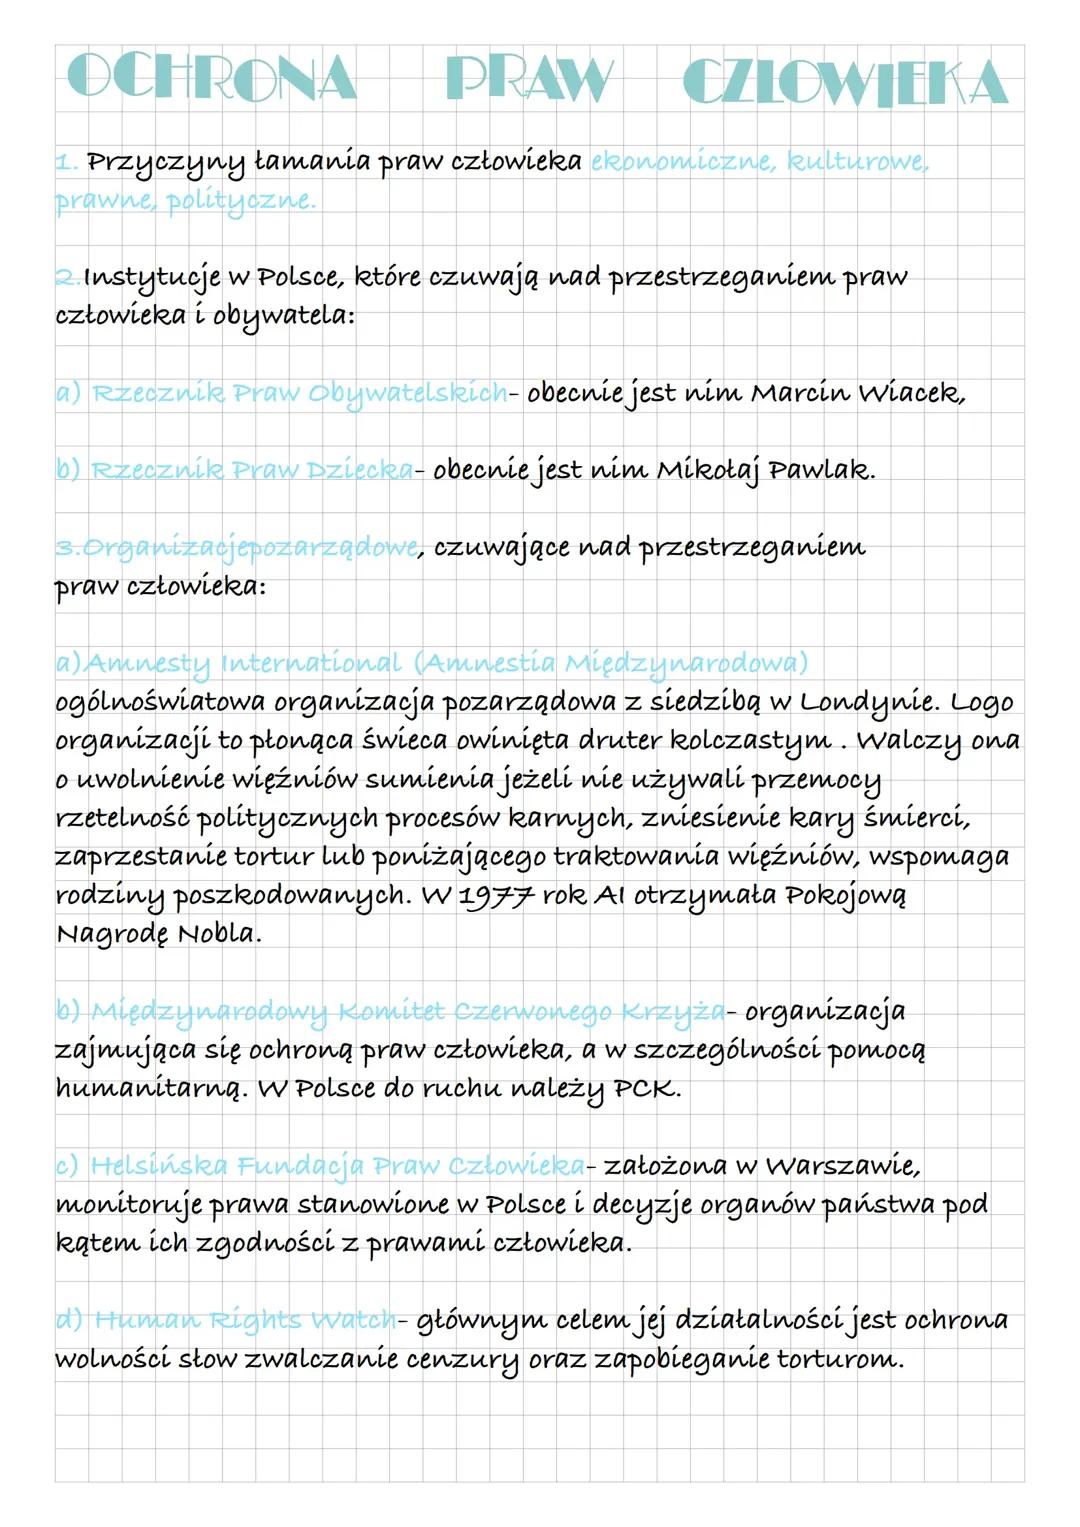 OCHRONA PRAW CZŁOWIEKA
1. Przyczyny łamania praw człowieka ekonomiczne, kulturowe,
prawne, polityczne.
2. Instytucje w Polsce, które czuwają nad przestrzeganiem praw
człowieka i obywatela:
a) Rzecznik Praw Obywatelskich- obecnie jest nim Marcin Wiacek,
b) Rzecznik Praw Dziecka- obecnie jest nim Mikołaj Pawlak.
3.Organizacjepozarządowe, czuwające nad przestrzeganiem
praw człowieka:
a) Amnesty International (Amnestia Międzynarodowa)
ogólnoświatowa organizacja pozarządowa z siedzibą w Londynie. Logo
organizacji to płonąca świeca owinięta druter kolczastym . Walczy ona
o uwolnienie więźniów sumienia jeżeli nie używali przemocy
rzetelność politycznych procesów karnych, zniesienie kary śmierci,
zaprzestanie tortur lub poniżającego traktowania więźniów, wspomaga
rodziny poszkodowanych. W 1977 rok AI otrzymała Pokojową
Nagrodę Nobla.
b) Międzynarodowy Komitet Czerwonego Krzyża- organizacja
zajmująca się ochroną praw człowieka, a w szczególności pomocą
humanitarną. W Polsce do ruchu należy PCK.
c) Helsińska Fundacja Praw Człowieka- założona w Warszawie,
monitoruje prawa stanowione w Polsce i decyzje organów państwa pod
kątem ich zgodności z prawami człowieka.
d) Human Rights Watch- głównym celem jej działalności jest ochrona
wolności słow zwalczanie cenzury oraz zapobieganie torturom.